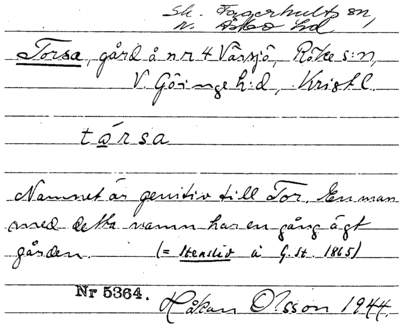 Sk. Fagerhults sn,
N. Åsbo hd
Torsa, gård å nr 4 Vårsjö, Röke s:n,
V. Göinge h:d, Kristl.
tårsa
Namnet är genitiv till Tor. En man
med detta namn har en gång ägt
gården. (= Stenslid å G.St. 1865)
Nr 5364.
Håkan Olsson 1944.